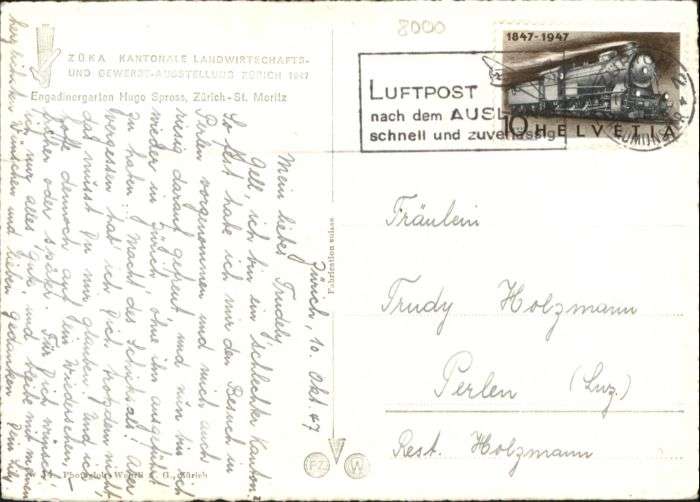 8000
ZÜKA KANTONALE LANDWIRTSCHAFTS-
UND GEWERBE-AUSSTELLUNG ZÜRICH 1947
Engadinergarten Hugo Spross, Zürich-St. Moritz
1847-1947
10 HELVETIA
LUFTPOST
nach dem AUSL
schnell und zuverlässig
Fabrication suisse
Fräulein
Trudy Holzmann
Perlen (Luz.)
Rest. Holzmann
Zürich, 10. Okt 47
Mein liebes Trudely
Gell, ich bin ein schlechter Kantonist
So fest habe ich mir den Besuch in
Perlen vorgenommen und mich auch
riesig darauf gefreut, und nun bin ich
wieder in Zürich ohne ihn ausgeführt
zu haben: Macht des Schicksals! Aber
vergessen hab ich Dich trotzdem nicht
das musst Du mir glauben. Und ich
hoffe dennoch auf ein Wiedersehen,
früher oder später. Für Dich wünsche
ich nur alles Gute, und bleibe mit meinen
herzlichsten Wünschen und lieben Gedanken Dein
Photoglob-Wehrli A. G., Zürich
FZ W